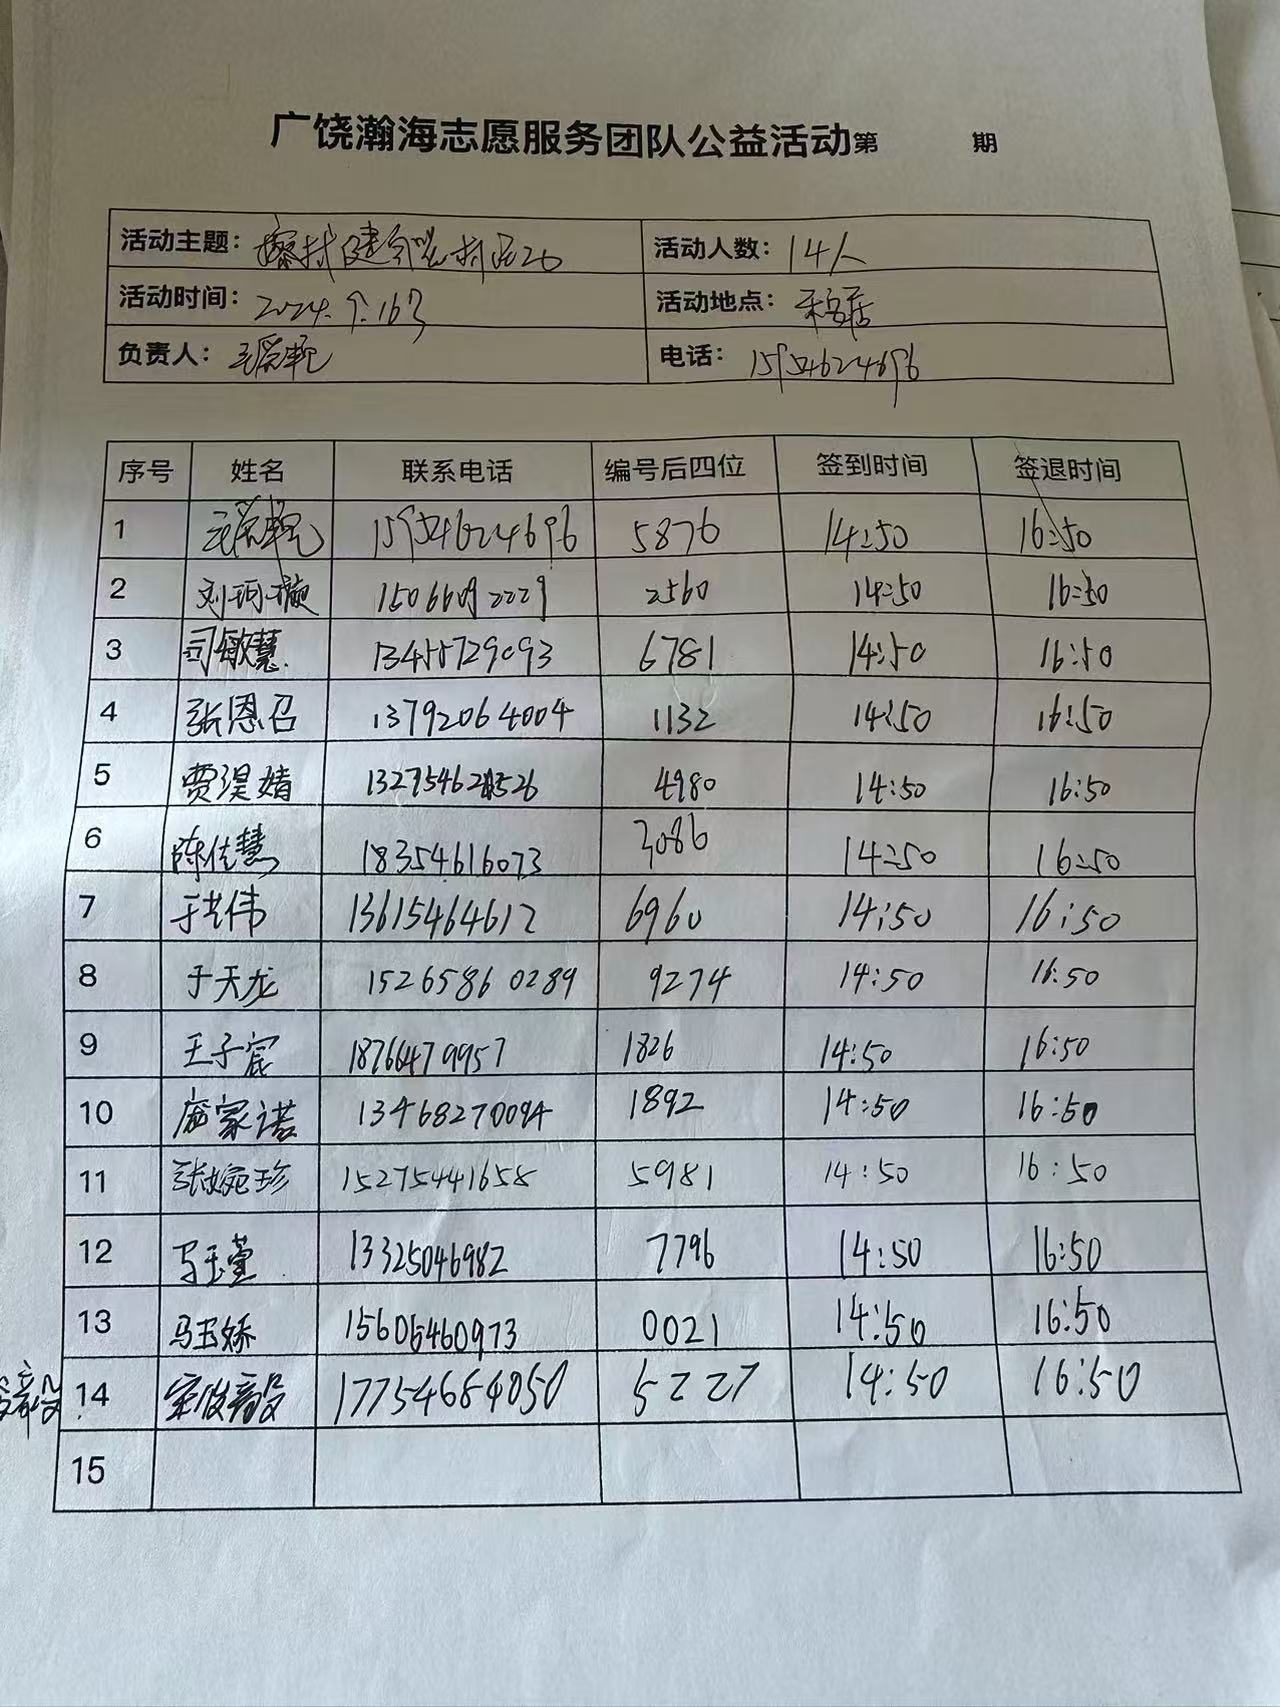 广饶瀚海志愿服务团队公益活动第 期
活动主题： 擦拭健 活动人数：14人
活动时间：2024.9.16日 活动地点：
负责人： 电话：15954624696
序号 姓名 联系电话 编号后四位 签到时间 签退时间
1 15954624696 5876 14:50 16:50
2 刘珂璇 15066092229 2560 14:50 16:50
3 司敏慧 13455729093 6781 14:50 16:50
4 张恩召 13792064004 1132 14:50 16:50
5 贾淏婧 4980 14:50 16:50
6 陈佳慧 18354616073 3086 14:50 16:50
7 于洪伟 13615464612 6960 14:50 16:50
8 于天龙 15265860289 9274 14:50 16:50
9 王子宸 18766479957 1826 14:50 16:50
10 庞家诺 13468270094 1892 14:50 16:50
11 张婉珍 15275441658 5981 14:50 16:50
12 马玉萱 13325046982 7796 14:50 16:50
13 马玉娇 15605460973 0021 14:50 16:50
14 17754684050 5227 14:50 16:50
15